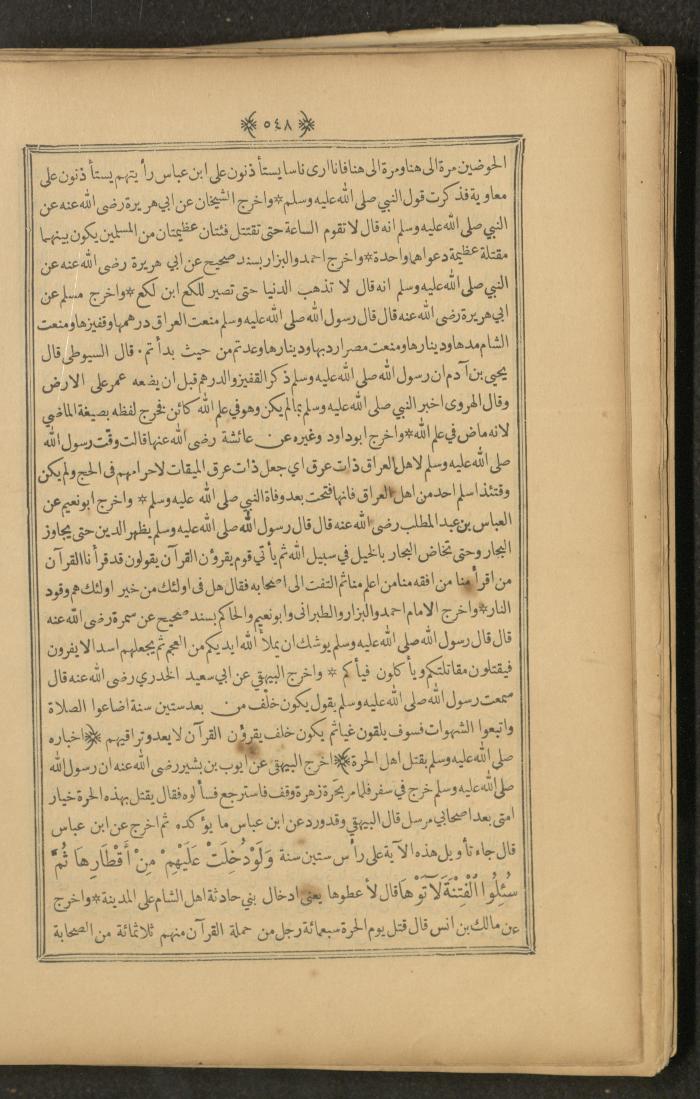 ﴿٥٤٨﴾
الحوضين مرة الى هنا ومرة الى هنا فانا ارى ناسا يستأذنون على ابن عباس رأيتهم يستأذنون على
معاوية فذكرت قول النبي صلى الله عليه وسلم * واخرج الشيخان عن ابي هريرة رضى الله عنه عن
النبي صلى الله عليه وسلم انه قال لا تقوم الساعة حتى تقتتل فئتان عظيمتان من المسلمين يكون بينهما
مقتلة عظيمة دعواهما واحدة * واخرج احمد والبزار بسند صحيح عن ابي هريرة رضى الله عنه عن
النبي صلى الله عليه وسلم انه قال لا تذهب الدنيا حتى تصير للكع ابن لكع * واخرج مسلم عن
ابي هريرة رضى الله عنه قال قال رسول الله صلى الله عليه وسلم منعت العراق درهمها وقفيزها ومنعت
الشام مدها ودينارها ومنعت مصر اردبها ودينارها وعدتم من حيث بدأتم . قال السيوطى قال
يحيى بن آدم ان رسول الله صلى الله عليه وسلم ذكر القفيز والدرهم قبل ان يضعه عمر على الارض
وقال الهروى اخبر النبي صلى الله عليه وسلم بما لم يكن وهو في علم الله كائن فخرج لفظه بصيغة الماضي
لانه ماض في علم الله * واخرج ابو داود وغيره عن عائشة رضى الله عنها قالت وقت رسول الله
صلى الله عليه وسلم لاهل العراق ذات عرق اي جعل ذات عرق الميقات لاحرامهم فى الحج ولم يكن
وقتئذ اسلم احد من اهل العراق فانها فتحت بعد وفاة النبي صلى الله عليه وسلم * واخرج ابو نعيم عن
العباس بن عبد المطلب رضى الله عنه قال قال رسول الله صلى الله عليه وسلم يظهر الدين حتى يجاوز
البحار وحتى تخاض البحار بالخيل في سبيل الله ثم يأتي قوم يقرؤن القرآن يقولون قد قرأنا القرآن
من اقرأ منا من افقه منا من اعلم منا ثم التفت الى اصحابه فقال هل فى اولئك من خير اولئك هم وقود
النار * واخرج الامام احمد والبزار والطبرانى وابو نعيم والحاكم بسند صحيح عن سمرة رضى الله عنه
قال قال رسول الله صلى الله عليه وسلم يوشك ان يملأ الله ايديكم من العجم ثم يجعلهم اسدا لا يفرون
فيقتلون مقاتلتكم ويأكلون فيأكم * واخرج البيهقي عن ابي سعيد الخدري رضى الله عنه قال
سمعت رسول الله صلى الله عليه وسلم يقول يكون خلف من بعد ستين سنة اضاعوا الصلاة
واتبعوا الشهوات فسوف يلقون غيا ثم يكون خلف يقرؤن القرآن لا يعدو تراقيهم ﴿ اخباره
صلى الله عليه وسلم بقتل اهل الحرة ﴾ اخرج البيهقى عن ايوب بن بشير رضى الله عنه ان رسول الله
صلى الله عليه وسلم خرج في سفر فلما مر بحرة زهرة وقف فاسترجع فسألوه فقال يقتل بهذه الحرة خيار
امتى بعد اصحابي مرسل قال البيهقي وقد ورد عن ابن عباس ما يؤكده ثم اخرج عن ابن عباس
قال جاء تأويل هذه الآية على رأس ستين سنة وَلَوْ دُخِلَتْ عَلَيْهِمْ مِنْ أَقْطَارِهَا ثُمَّ
سُئِلُوا الْفِتْنَةَ لَآتَوْهَا قال لأعطوها يعنى ادخال بني حارثة اهل الشام على المدينة * واخرج
عن مالك بن انس قال قتل يوم الحرة سبعمائة رجل من حملة القرآن منهم ثلاثمائة من الصحابة